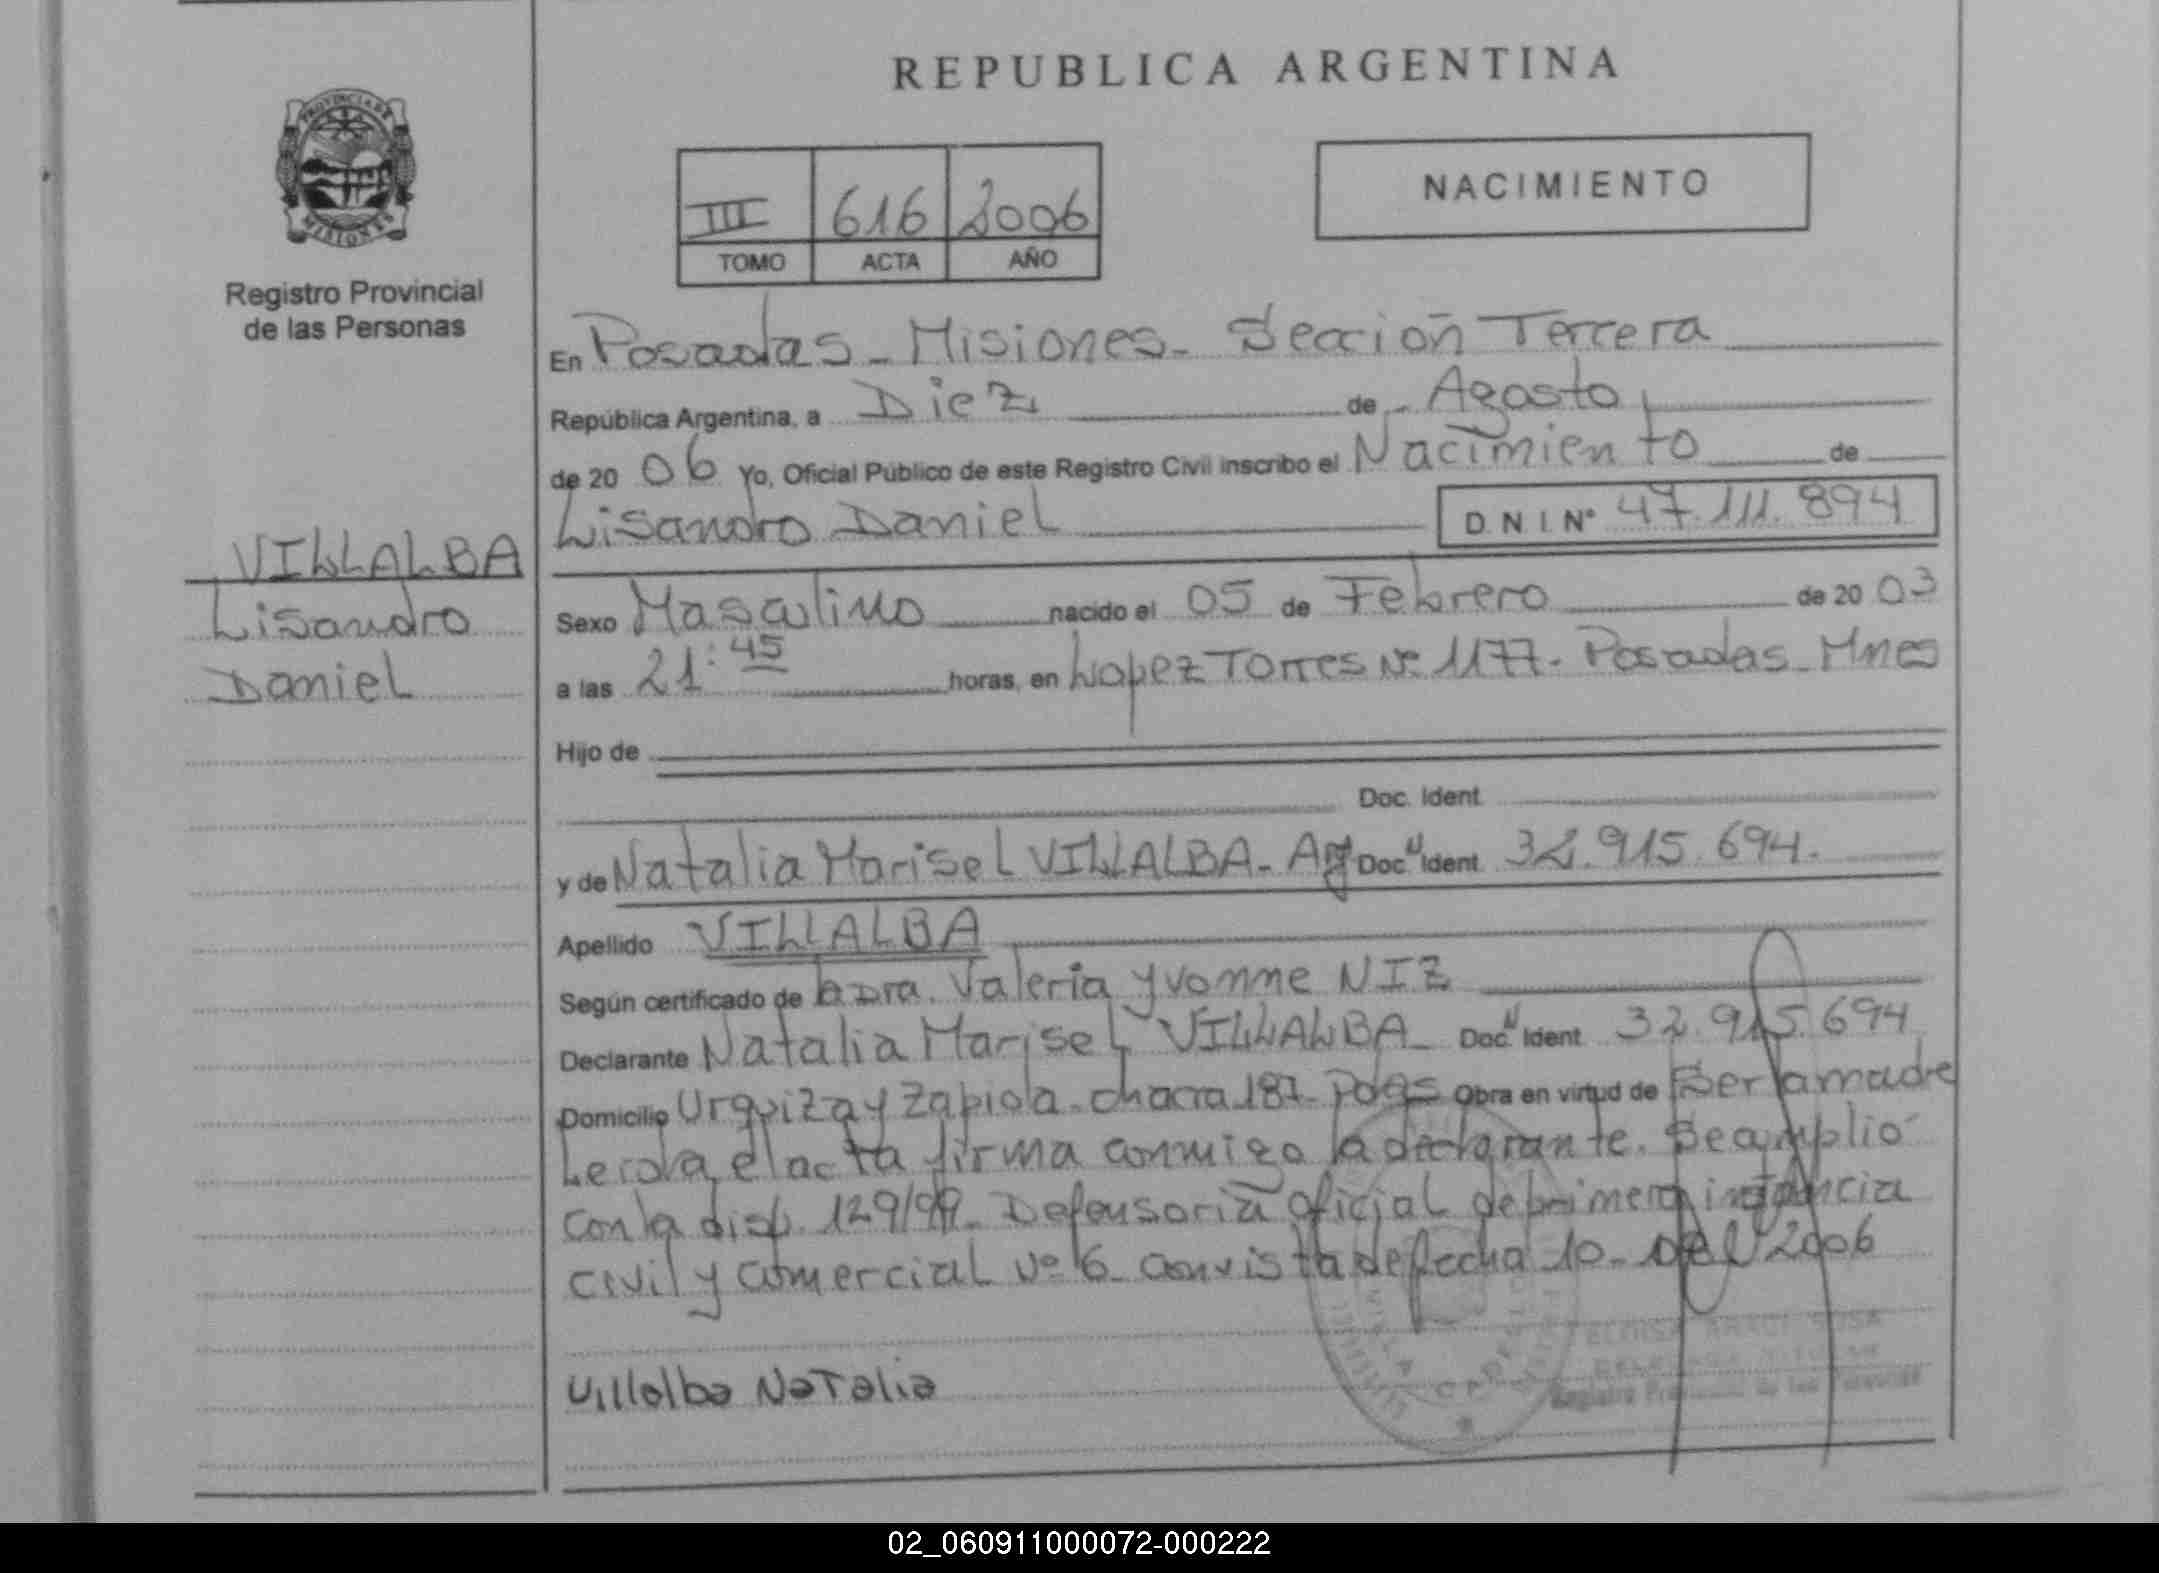 REPUBLICA ARGENTINA
PROVINCIA DE
MISIONES
Registro Provincial
de las Personas
III 616 2006
TOMO ACTA AÑO
NACIMIENTO
En Posadas - Misiones - Sección Tercera
República Argentina, a Diez de Agosto
de 20 06 Yo, Oficial Público de este Registro Civil inscribo el Nacimiento de
Lisandro Daniel D.N.I. N° 47.111.894
VILLALBA
Lisandro
Daniel
Sexo Masculino nacido el 05 de Febrero de 20 03
a las 21:45 horas, en Lopez Torres Nº 1177. Posadas - Mnes
Hijo de
Doc. Ident.
y de Natalia Marisel VILLALBA - Arg Doc. Ident. 32.915.694.
Apellido VILLALBA
Según certificado de la Dra. Valeria Yvonne NIZ
Declarante Natalia Marisel VILLALBA - Doc. Ident. 32.915.694
Domicilio Urquiza y Zapiola - chacra 187 - Pdas Obra en virtud de Ser la madre
Leida el acta firma conmigo la declarante. Se amplio
con la disp. 129/99 - Defensoria oficial de primera instancia
civil y comercial Nº 6 - con vista de fecha 10 - 2006
Villalba Natalia
ELOISA SOSA
Registro Provincial de las Personas
02_060911000072-000222